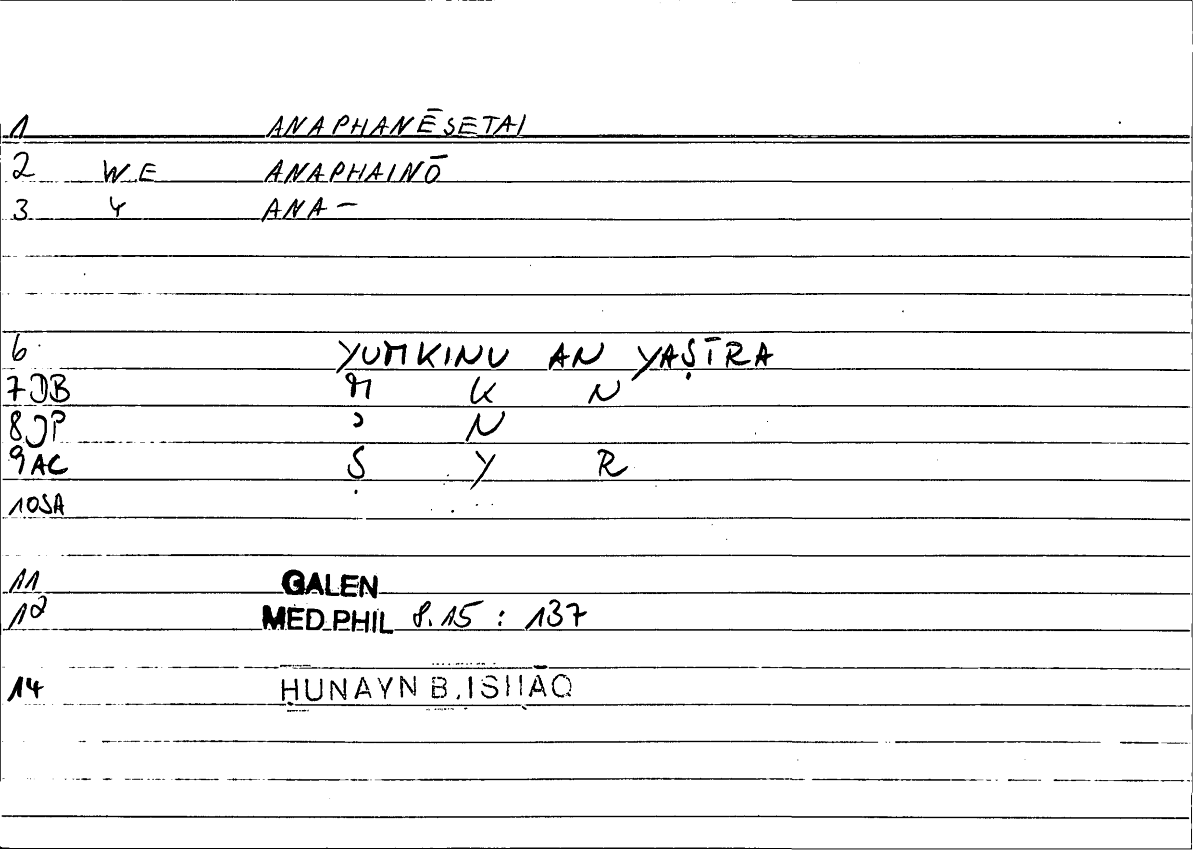 1 ANAPHANĒSETAI
2 W.E ANAPHAINŌ
3 4 ANA-
6 YUMKINU AN YAṢĪRA
7 JB M K N
8 JP ʾ N
9 AC Ṣ Y R
10 SA
11 GALEN
12 MED PHIL 8.15 : 137
14 ḤUNAYN B. ISḤĀQ